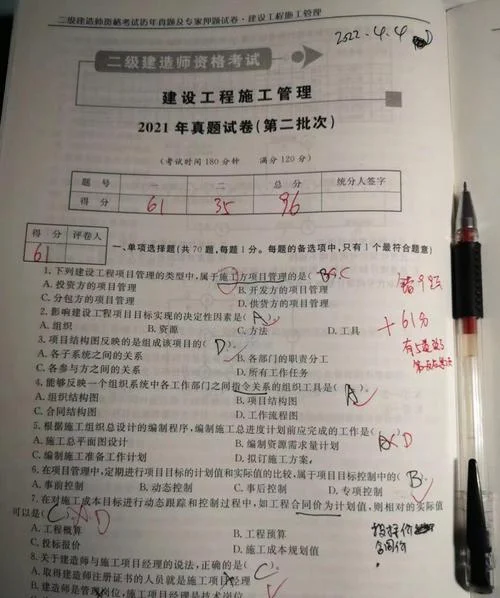 二级建造师资格考试历年真题及专家押题试卷·建设工程施工管理
2022.4.4
二级建造师资格考试
建设工程施工管理
2021年真题试卷(第二批次)
(考试时间180分钟 满分120分)
题号 一 二 总分 统分人签字
得分 61 35 96
得分 评卷人
61
一、单项选择题(共70题,每题1分。每题的备选项中,只有1个最符合题意)
1.下列建设工程项目管理的类型中,属于施工方项目管理的是( B C
A.投资方的项目管理 B.开发方的项目管理
C.分包方的项目管理 D.供货方的项目管理
错9题
+61分
2.影响建设工程项目目标实现的决定性因素是( A )。
A.组织 B.资源 C.方法 D.工具
3.项目结构图反映的是组成该项目的( D )。
A.各子系统之间的关系 B.各部门的职责分工
C.各参与方之间的关系 D.所有工作任务
4.能够反映一个组织系统中各工作部门之间指令关系的组织工具是( A )。
A.组织结构图 B.项目结构图
C.合同结构图 D.工作流程图
5.根据施工组织总设计的编制程序,编制施工总进度计划前应完成的工作是( A X D
A.施工总平面图设计 B.编制资源需求量计划
C.编制施工准备工作计划 D.拟订施工方案
6.在项目管理中,定期进行项目目标的计划值和实际值的比较,属于项目目标控制中的( B )。
A.事前控制 B.动态控制 C.事后控制 D.专项控制
7.在对施工成本目标进行动态跟踪和控制过程中,如工程合同价为计划值,则相对的实际值
可以是( C X D
A.工程概算 B.工程预算
C.投标报价 D.施工成本规划值
投标价
合同价
8.关于建造师与施工项目经理的说法,正确的是( C )。
A.取得建造师注册证书的人员就是施工项目经理
B.建造师是管理岗位,施工项目经理是技术岗位